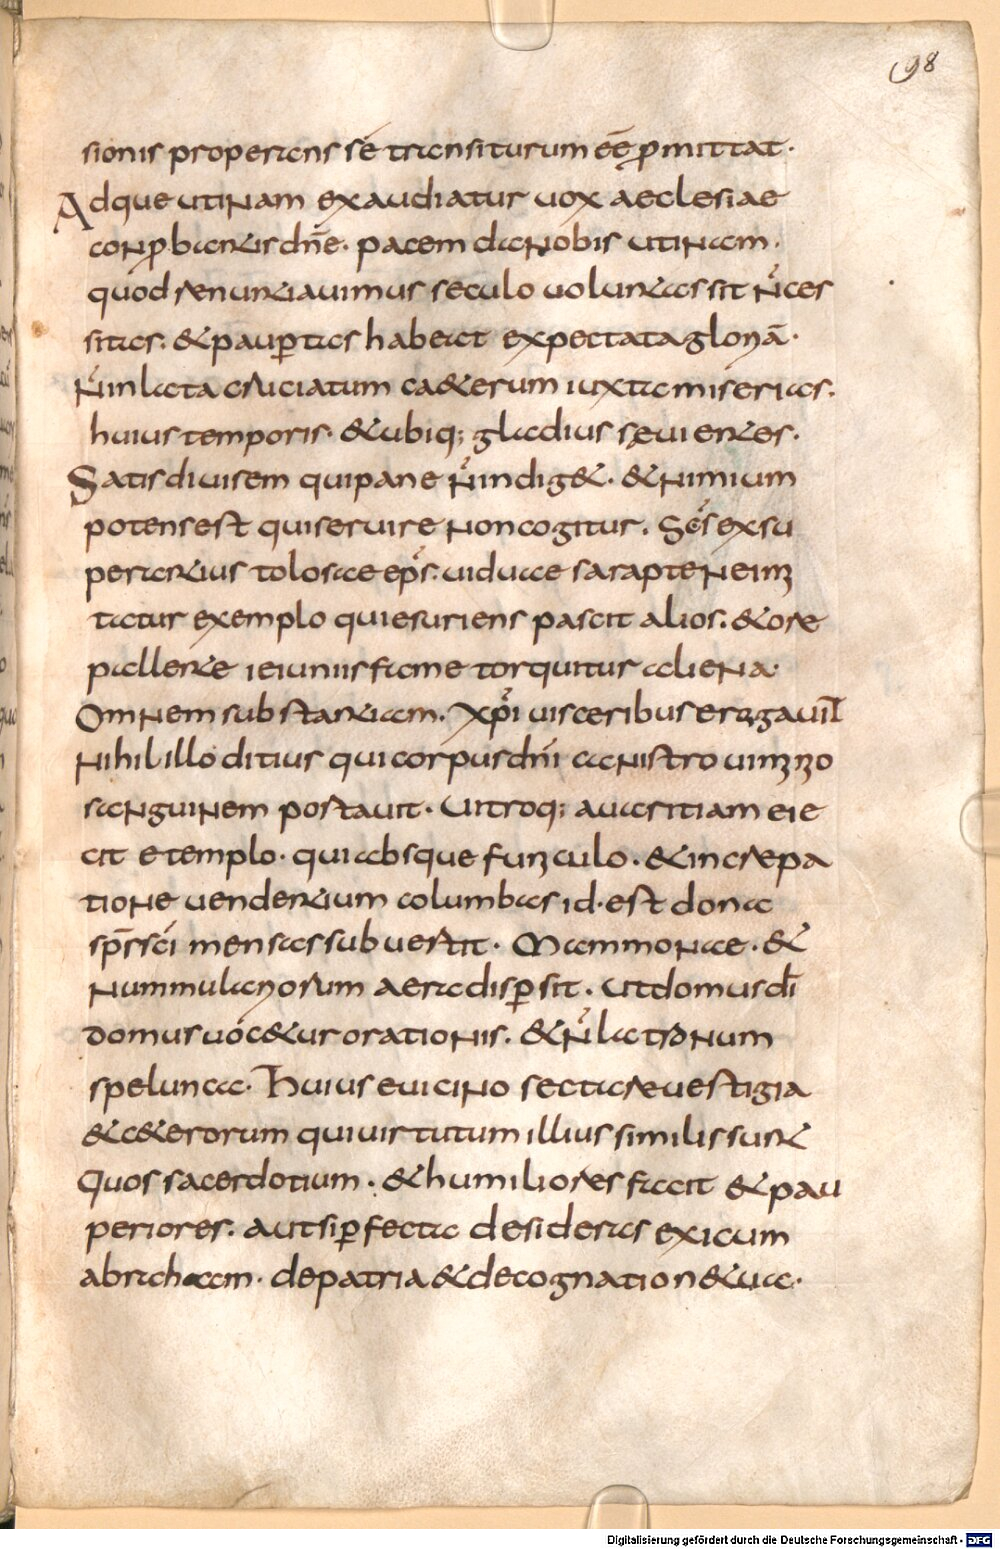 98
sionis properans sé transiturum eē ꝑmittat·
Adque utinam exaudiatur uox aeclesiae
conꝓbantis dn̄e· pacem da nobis utinam·
quod renuntiauimus seculo uoluntas sit ń ces
sitas· & pauꝑtas habeat expectata gloriā·
ń inlata cruciatum cæterum iuxta miserias·
huius temporis· & ubiq; gladius sęuientes·
Satis diuisem qui pane ń indig&· & nimium
potens est qui seruire non cogitur· Sc̄s exsu
perantius tolosae ep̄s· uiduae saraptene imi
tatur exemplo qui esuriens pascit alios· & ore
pallente ieiuniis fame torquitur aliena·
Omnem substantiam· xp̄i uisceribus erogauit
Nihil illo ditius qui corpus dn̄i canistro uimino
sanguinem portauit· Uitroq; auaritiam eie
cit e templo· qui absque funiculo· & increpa
tione uendentium columbas id·est dona
sp̄s sc̄i mensas subuertit· Mammonae· &
nummulariorum aera dispersit· ut domus dī
domus uocetur orationis· & ń latronum
spelunca· Huius e uicino sectare uestigia
& ceterorum qui uirtutum illius similis sunt
Quos sacerdotium· & humiliores facit & pau
periores· aut si ꝑfecta desideras exi cum
abraham· de patria & de cognatione tua·
Digitalisierung gefördert durch die Deutsche Forschungsgemeinschaft - DFG